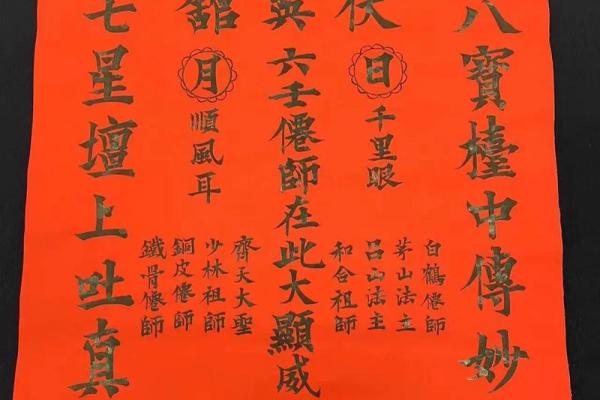 八寶檯中傳妙
伏英舘
日
千里眼
白鶴僊師
茅山法主
呂山法主
和合祖師
六壬僊師在此大顯威
月
順風耳
齊天大聖
少林祖師
銅皮僊師
鐵骨僊師
七星壇上吐真